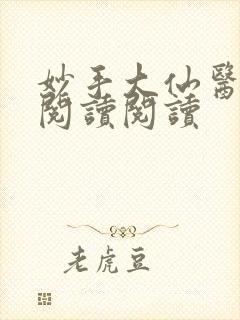 妙手大仙醫
閱讀閱讀
老虎豆